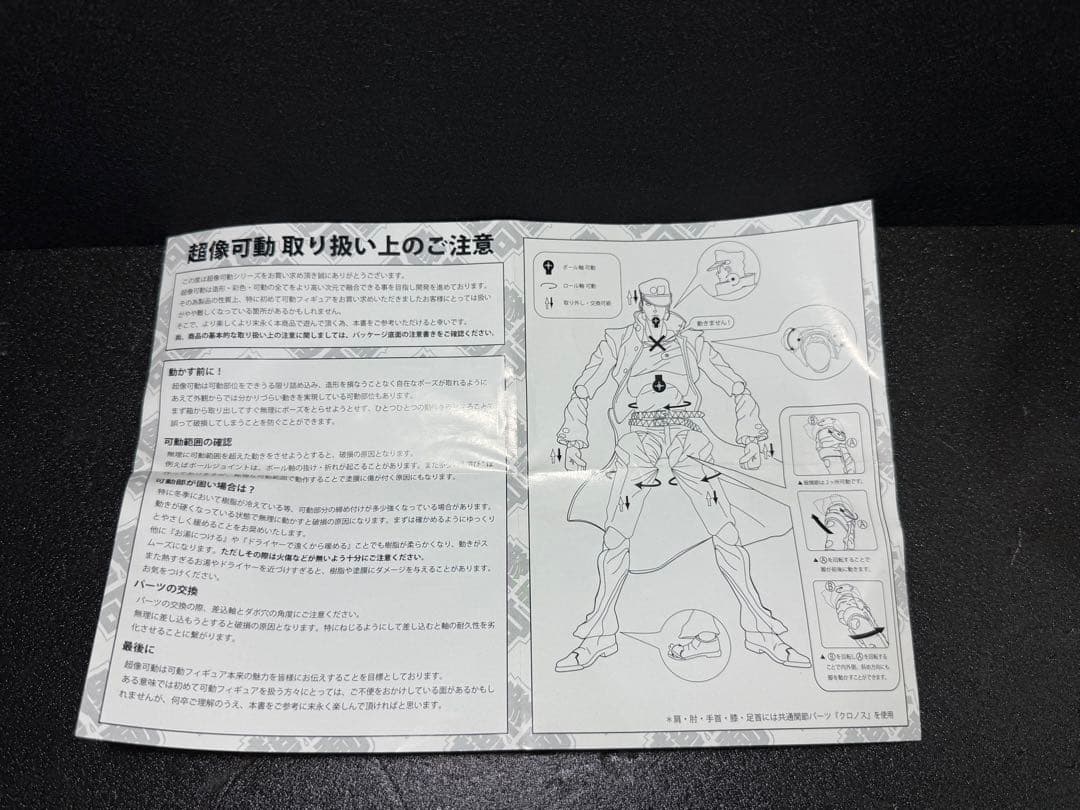 超像可動 取り扱い上のご注意
この度は超像可動シリーズをお買い求め頂き誠にありがとうございます。
超像可動は造形・彩色・可動の全てをより高い次元で融合できる事を目指し開発を進めております。
その為製品の性質上、特に初めて可動フィギュアをお買い求めいただきましたお客様にとっては扱い
がやや難しくなっている箇所があるかもしれません。
そこで、より楽しくより末永く本商品で遊んで頂く為、本書をご参考いただけると幸いです。
尚、商品の基本的な取り扱い上の注意に関しましては、パッケージ底面の注意書きをご確認ください。
動かす前に！
超像可動は可動部位をできうる限り詰め込み、造形を損なうことなく自在なポーズが取れるように
あえて外観からでは分かりづらい動きを実現している可動部位もあります。
まず箱から取り出してすぐ無理にポーズをとらせようとせず、ひとつひとつの
誤って破損してしまうことを防ぐことができます。
可動範囲の確認
無理に可動範囲を超えた動きをさせようとすると、破損の原因となります。
例えばボールジョイントは、ボール軸の抜け・折れが起こることがあります。また
で動作することで塗膜に傷が付く原因にもなります。
可動部が固い場合は？
特に冬季において樹脂が冷えている等、可動部分の締め付けが多少強くなっている場合があります。
動きが硬くなっている状態で無理に動かすと破損の原因になります。まずは確かめるようにゆっくり
とやさしく緩めることをお奨めいたします。
他に『お湯につける』や『ドライヤーで遠くから暖める』ことでも樹脂が柔らかくなり、動きがス
ムーズになります。ただしその際は火傷などが無いよう十分にご注意ください。
また熱すぎるお湯やドライヤーを近づけすぎると、樹脂や塗膜にダメージを与えることがあります。
お気をつけください。
パーツの交換
パーツの交換の際、差込軸とダボ穴の角度にご注意ください。
無理に差し込もうとすると破損の原因となります。特にねじるようにして差し込むと軸の耐久性を劣
化させることに繋がります。
最後に
超像可動は可動フィギュア本来の魅力を皆様にお伝えすることを目標としております。
ある意味では初めて可動フィギュアを扱う方々にとっては、ご不便をおかけしている面があるかもし
れませんが、何卒ご理解のうえ、本書をご参考に末永く楽しんで頂ければと思います。
ボール軸 可動
ロール軸 可動
取り外し・交換可能
動きません！
B
A
▲ 股関節は２ヶ所可動です。
A
▲ Ⓐを回転することで
脚が前後に動きます。
B
▲ Ⓑを回転しⒶを回転する
ことで内外側、斜め方向にも
脚を動かすことができます。
＊肩・肘・手首・膝・足首には共通関節パーツ『クロノス』を使用